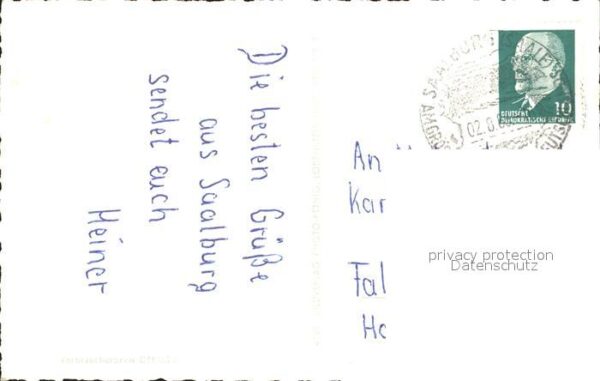 Die besten Grüße
aus Saalburg
sendet euch
Heiner
SAALBURG (SAALE)
02.8.
10
DEUTSCHE
DEMOKRATISCHE REPUBLIK
An
Kar
Fal
privacy protection
Datenschutz